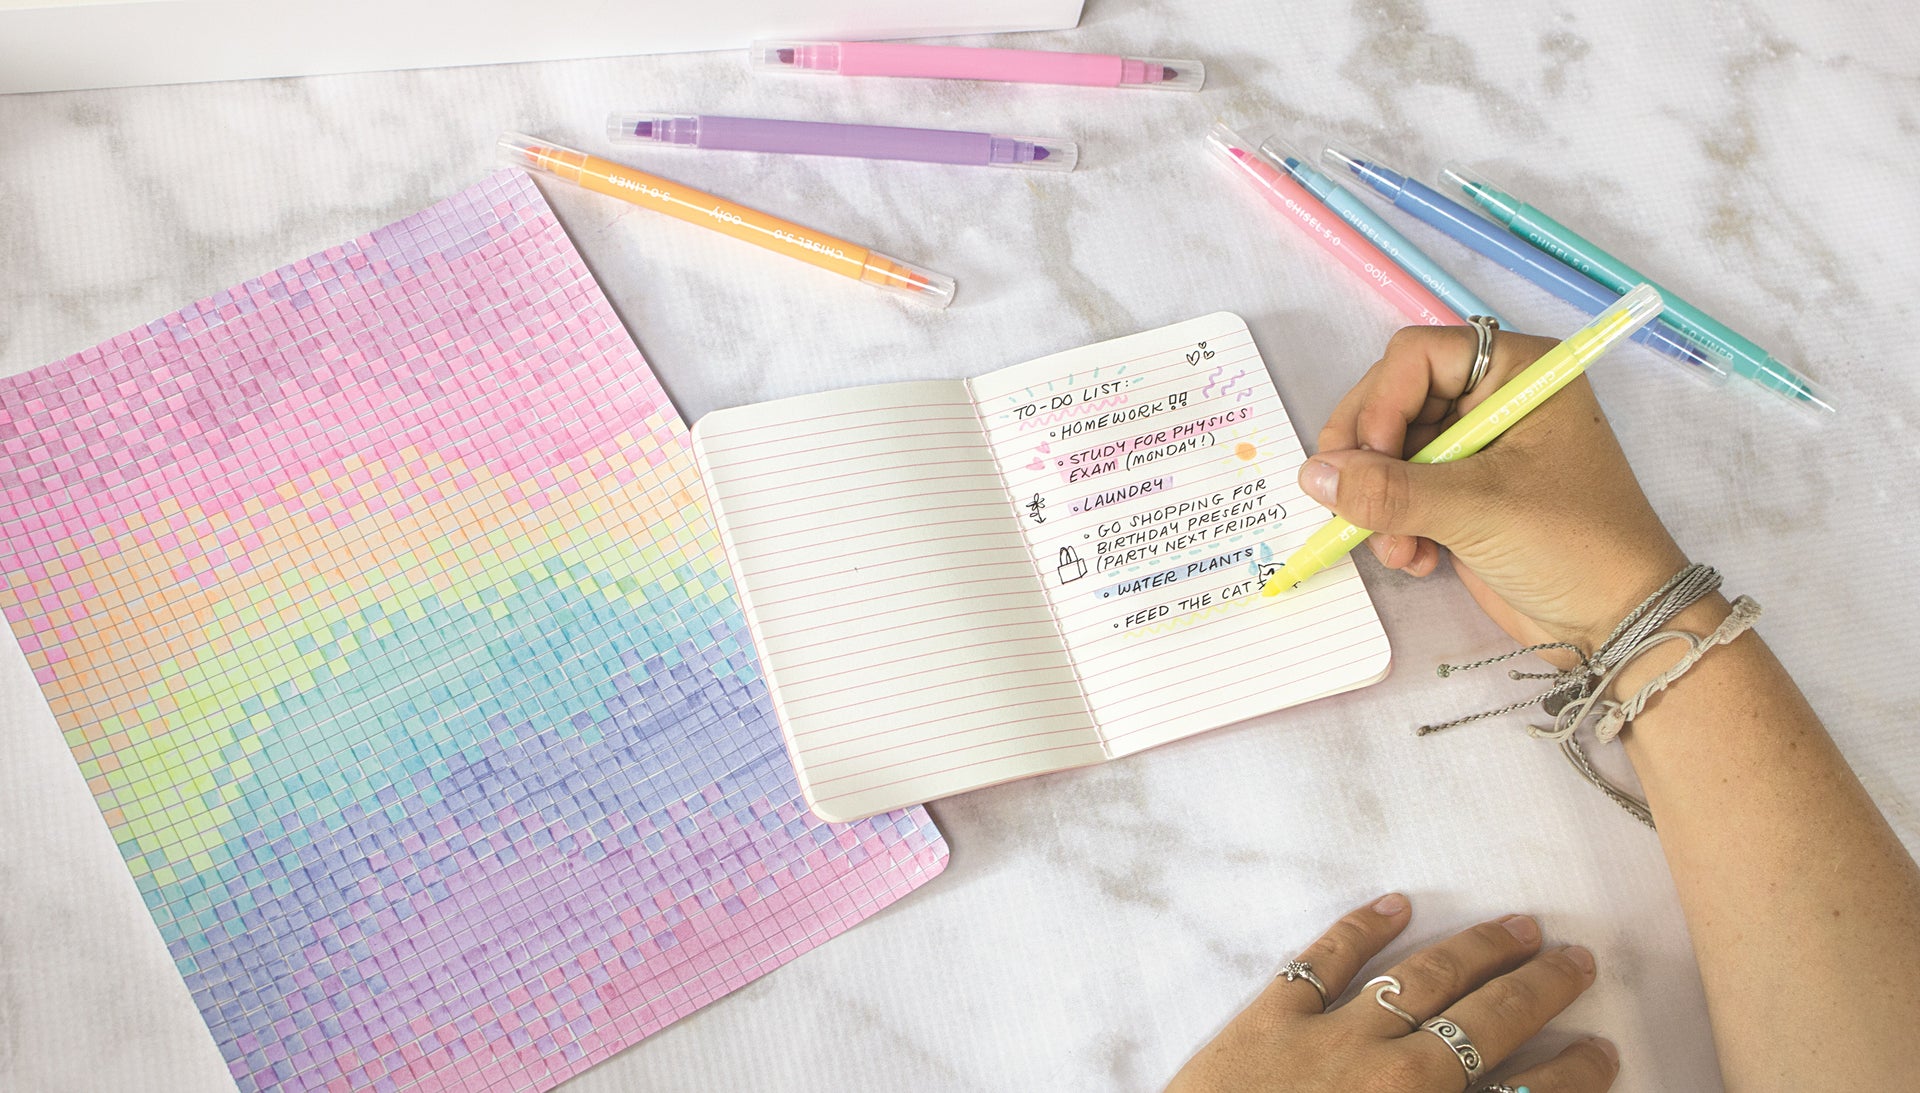 3.0 LINER
ooly
CHISEL 5.0
CHISEL 5.0
ooly
3.0
CHISEL 5.0
ooly
CHISEL 5.0
3.0 LINER
CHISEL 5.0
TO-DO LIST:
• HOMEWORK !!
• STUDY FOR PHYSICS
EXAM (MONDAY!)
• LAUNDRY
• GO SHOPPING FOR
BIRTHDAY PRESENT
(PARTY NEXT FRIDAY)
• WATER PLANTS
• FEED THE CAT